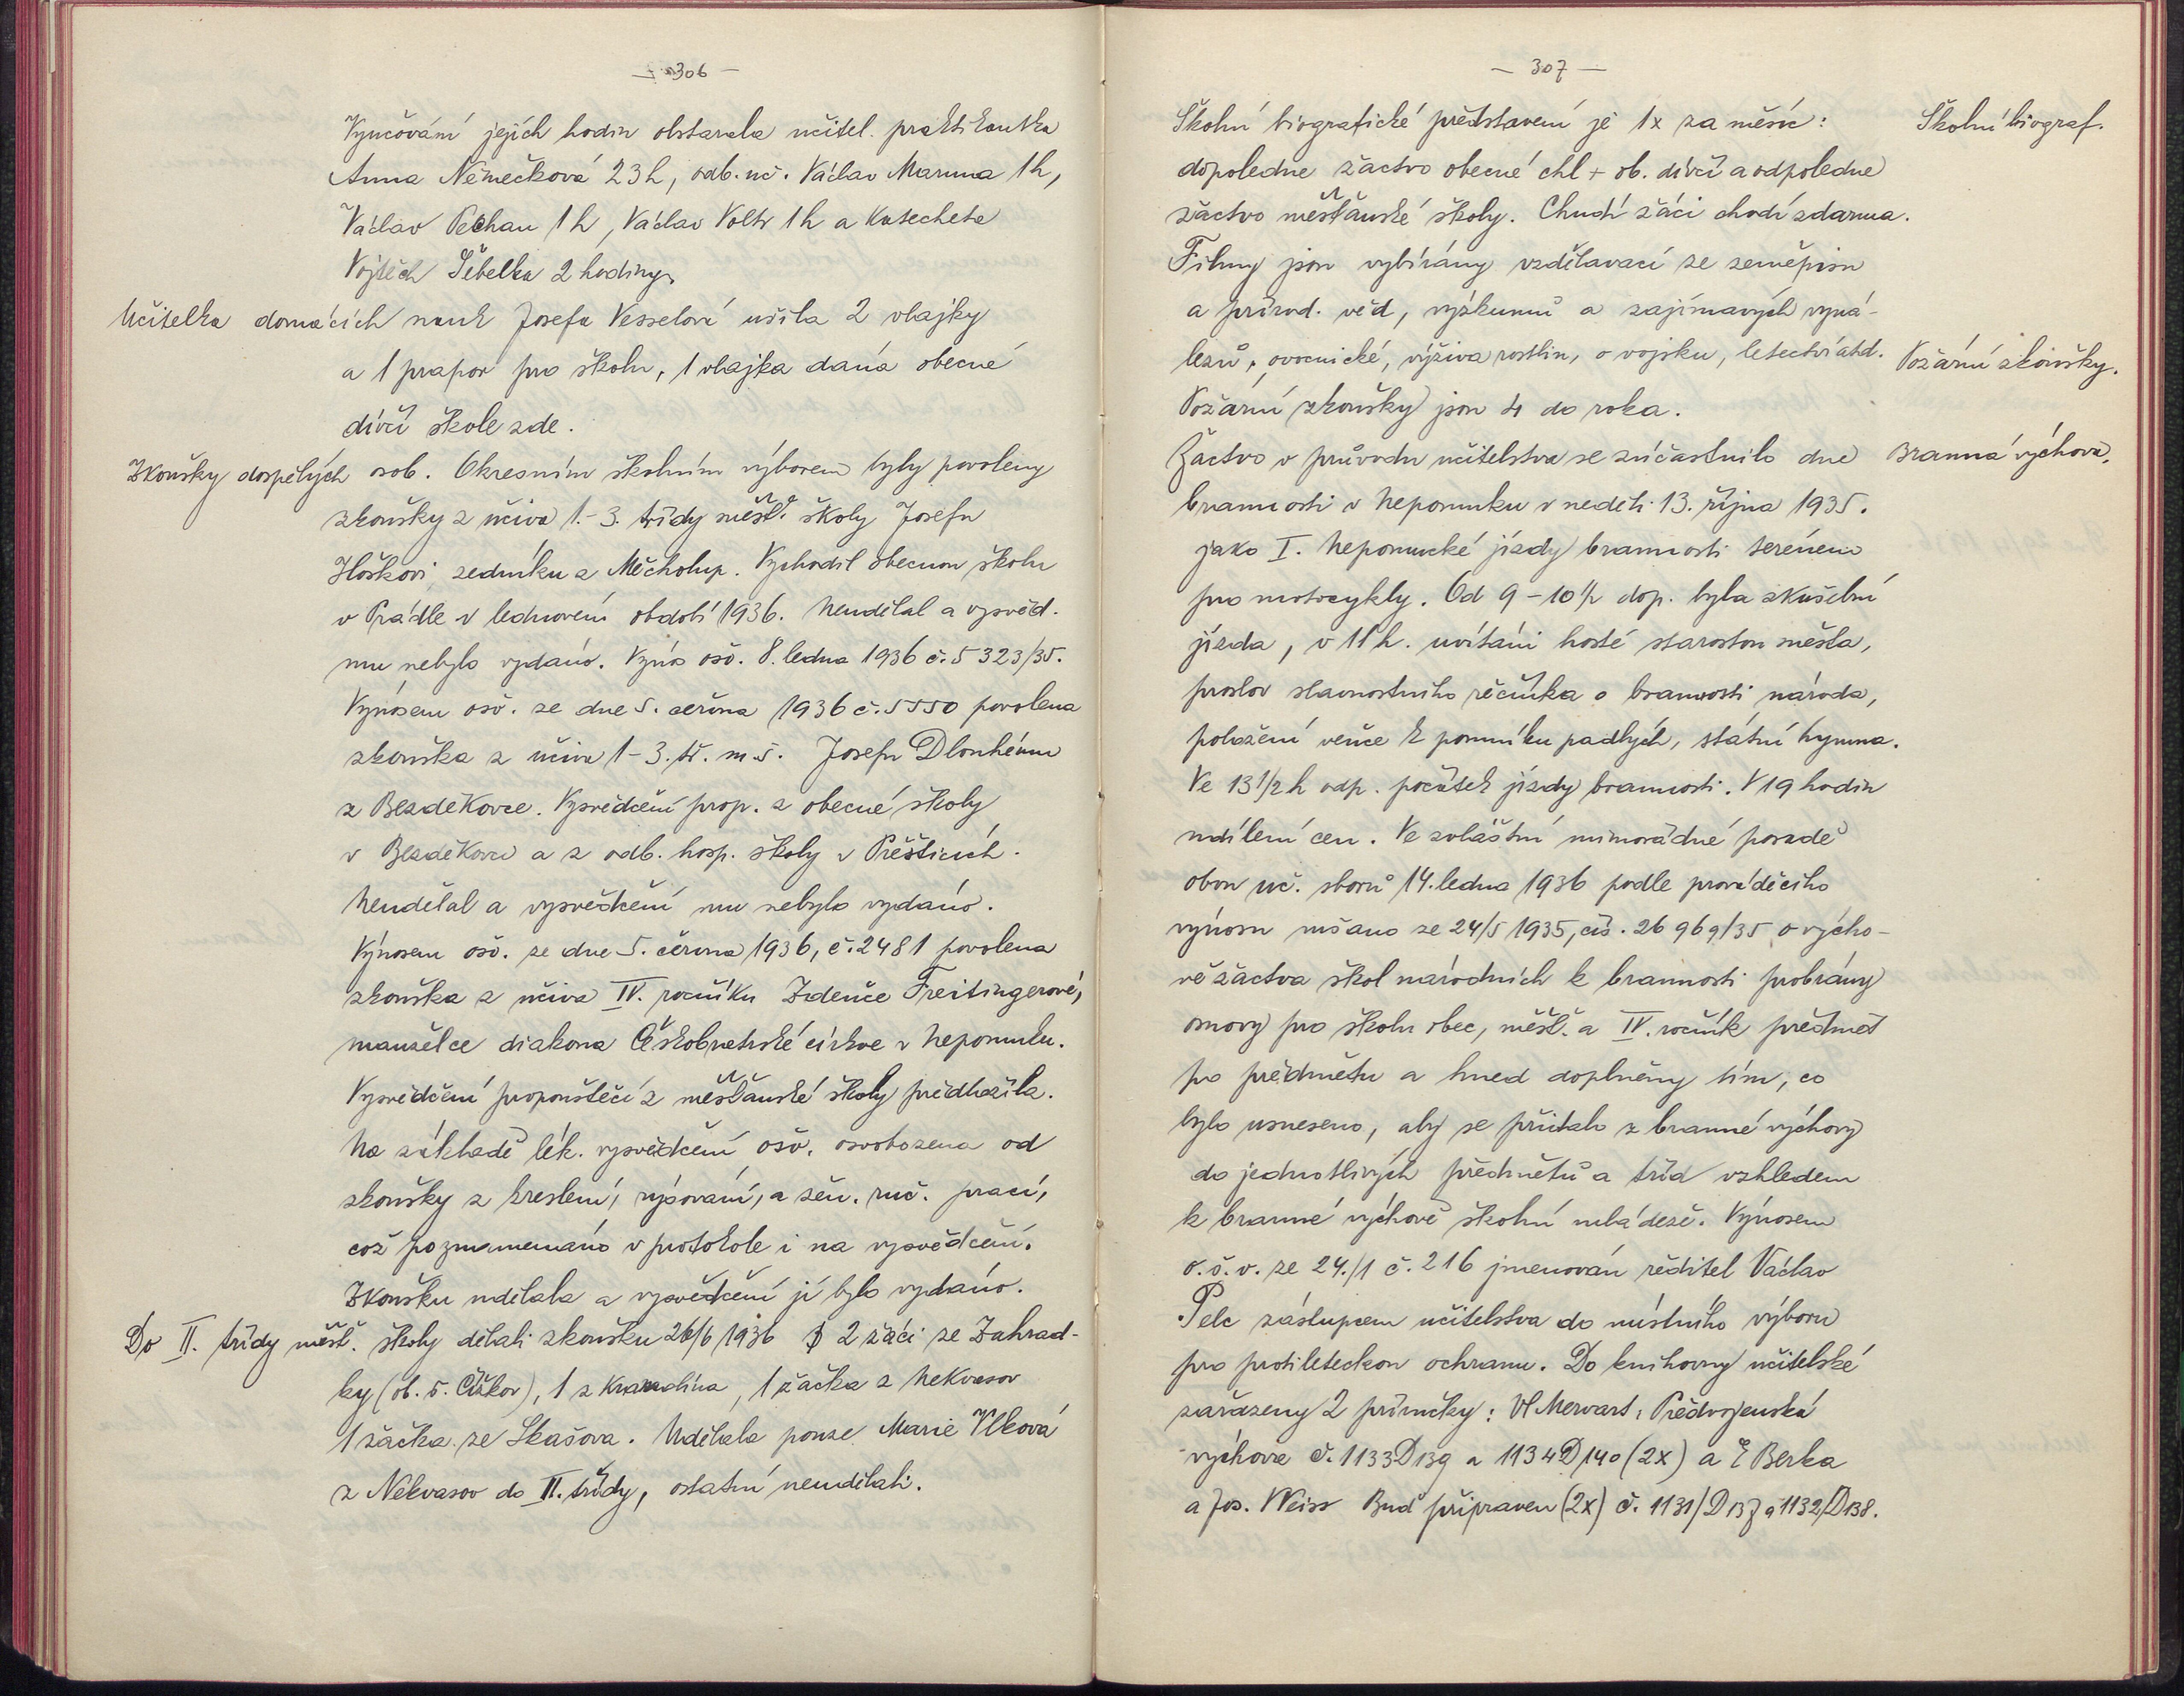 — 306 —
Vyučování jejích hodin obstarala učitel. praktikantka
Anna Němečková 23 h, odb. uč. Václav Maruna 1 h,
Václav Pechan 1 h, Václav Voltr 1 h a katecheta
Vojtěch Šebelka 2 hodiny.
Učitelka domácích nauk Josefa Vesselová ušila 2 vlajky
a 1 prapor pro školu, 1 vlajka daná obecné
dívčí škole zde.
Zkoušky dospělých osob. Okresním školním výborem byly povoleny
zkoušky z učiva 1.-3. třídy měšť. školy Josefu
Hoškovi, zedníku z Měcholup. Vychodil obecnou školu
v Prádle v lednovém období 1936. Neudělal a vysvěd.
mu nebylo vydáno. Výnos ošv. 8. ledna 1936 č. 5323/35.
Výnosem ošv. ze dne 5. června 1936 č. 5550 povolena
zkouška z učiva 1-3. tř. m. š. Josefu Dlouhému
z Bezděkovce. Vysvědčení prop. z obecné školy
v Bezděkovci a z odb. hosp. školy v Přešticích.
Neudělal a vysvědčení mu nebylo vydáno.
Výnosem ošv. ze dne 5. června 1936, č. 2481 povolena
zkouška z učiva IV. ročníku Zdeňce Freitingerové,
manželce diakona Českobratrské církve v Nepomuku.
Vysvědčení propouštěcí z měšťanské školy předložila.
Na základě lék. vysvědčení ošv. osvobozena od
zkoušky z kreslení, rýsování, a žen. ruč. prací,
což poznamenáno v protokole i na vysvědčení.
Zkoušku udělala a vysvědčení jí bylo vydáno.
Do II. třídy měšť. školy dělali zkoušku 26/6 1936 2 žáci ze Zahrad-
ky (ob. š. Čížkov), 1 z Kramolína, 1 žačka z Nekvasov
1 žačka ze Skašova. Udělala pouze Marie Vlková
z Nekvasov do II. třídy, ostatní neudělali.
— 307 —
Školní biografické představení je 1x za měsíc:
Školní biograf.
dopoledne žactvo obecné chl + ob. dívčí a odpoledne
žactvo měšťanské školy. Chudí žáci chodí zdarma.
Filmy jsou vybírány vzdělavací ze zeměpisu
a přírod. věd, výzkumů a zajímavých vyná-
lezů, ovocnické, výživa rostlin, o vojsku, letectví atd.
Požární zkoušky.
Požární zkoušky jsou 4 do roka.
Žactvo v průvodu učitelstva se zúčastnilo dne
Branná výchova.
brannosti v Nepomuku v neděli 13. října 1935.
jako I. Nepomucké jízdy brannosti terénem
pro motocykly. Od 9 - 10½ dop. byla zkušební
jízda, v 11 h. uvítáni hosté starostou města,
proslov slavnostního řečníka o brannosti národa,
položení věnce k pomníku padlých, státní hymna.
Ve 13 1/2 h odp. počátek jízdy brannosti. V 19 hodin
udílení cen. Ve zvláštní mimořádné poradě
obou uč. sborů 14. ledna 1936 podle prováděcího
výnosu mšano ze 24/5 1935, čís. 26 969/35 o výcho-
vě žactva škol národních k brannosti probrány
osnovy pro školu obec, měšť. a IV. ročník předmět
po předmětu a hned doplněny tím, co
bylo usneseno, aby se přidalo z branné výchovy
do jednotlivých předmětů a tříd vzhledem
k branné výchově školní mládeže. Výnosem
o. š. v. ze 24./1 č. 216 jmenován ředitel Václav
Pelc zástupcem učitelstva do místního výboru
pro protileteckou ochranu. Do knihovny učitelské
zařazeny 2 příručky: Vl Mervart: Předvojenská
výchova č. 1133 D 139 a 1134 D 140 (2x) a E Berka
a Jos. Weiss Buď připraven (2x) č. 1131/D 137 a 1132/D 138.